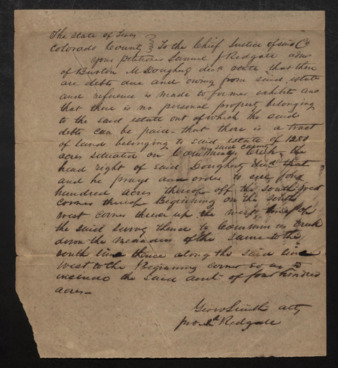 The State of Texas
Colorado County } To the Chief Justice of said Co
Your petitioner Samuel J Redgate adm
of Burton M Doughty decd states that there
are debts due and owing from said estate
and reference is made to former exhibits and
that there is no personal property belonging
to the said estate out of which the said
debts can be paid - that there is a tract
of land belonging to said estate of 1280
acres situated on Creek the
head right of said Doughty decd that
and he prays an order to sell four
hundred acres thereof off the South West
corner thereof Beginning on the South
West corner thence up the West line of
the said survey thence to Creek
down the meanders of the same to the
South line thence along the said line
West to the Beginning corner so as to
include the said amt of four hundred
acres -
Geo W Smith atty
pro Redgate